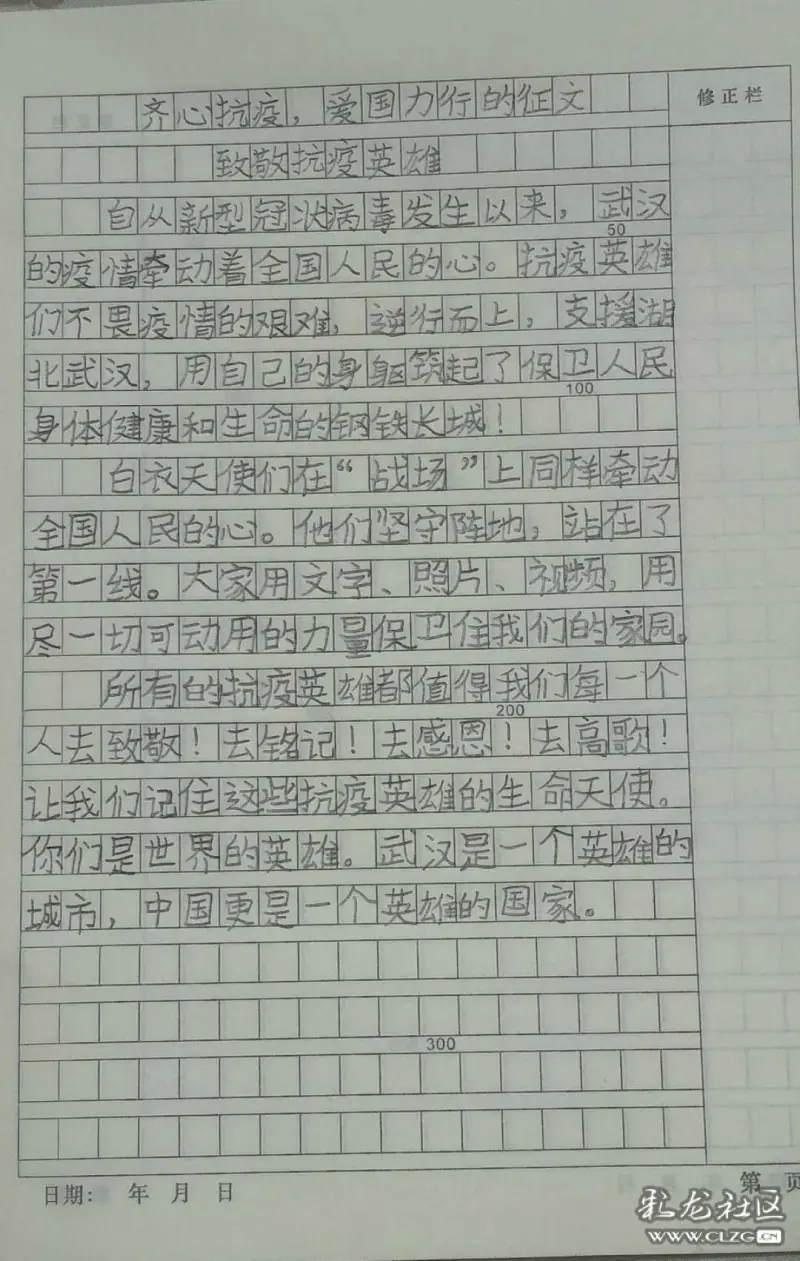 齐心抗疫，爱国力行的征文
修正栏
致敬抗疫英雄
自从新型冠状病毒发生以来，武汉
50
的疫情牵动着全国人民的心。抗疫英雄
们不畏疫情的艰难，逆行而上，支援湖
北武汉，用自己的身躯筑起了保卫人民
100
身体健康和生命的钢铁长城！
白衣天使们在“战场”上同样牵动
全国人民的心。他们坚守阵地，站在了
第一线。大家用文字、照片、视频，用
尽一切可动用的力量保卫住我们的家园。
所有的抗疫英雄都值得我们每一个
200
人去致敬！去铭记！去感恩！去高歌！
让我们记住这些抗疫英雄的生命天使。
你们是世界的英雄。武汉是一个英雄的
城市，中国更是一个英雄的国家。
300
日期：　年　月　日
第　页
龙社区
WWW.CLZG.CN